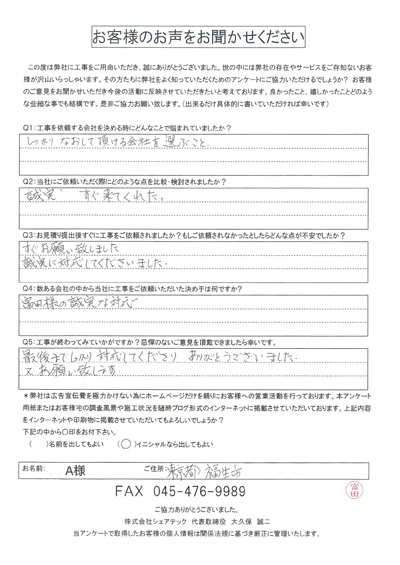 お客様のお声をお聞かせください
この度は弊社に工事をご用命いただき、誠にありがとうございました。世の中には弊社の存在やサービスをご存知ないお客
様が沢山いらっしゃいます。その方たちに弊社をよく知っていただくためのアンケートにご協力いただけるでしょうか？ お客様
のご意見をお聞かせいただき今後の活動に反映させていただきたいと考えております。良かったこと、嬉しかったことどのよう
な些細な事でも結構です。是非ご協力お願い致します。（出来るだけ具体的に書いていただければ幸いです）
Q1：工事を依頼する会社を決める時にどんなことで悩まれていましたか？
しっかり なおして頂ける会社を選ぶこと。
Q2：当社にご依頼いただく際にどのような点を比較・検討されましたか？
誠実 すぐ来てくれた。
Q3：お見積り提出後すぐに工事をご依頼されましたか？もしご依頼されなかったとしたらどんな点が不安でしたか？
すぐお願い致しました
誠実に対応してくださいました.
Q4：数ある会社の中から当社に工事をご依頼いただいた決め手は何ですか？
富田様の誠実な対応で
Q5：工事が終わってみていかがですか？忌憚のないご意見を頂戴できましたら幸いです。
最後までしっかり対応してくださり ありがとうございました.
又 お願い致します.
＊弊社は広告宣伝費を極力かけない為にホームページだけを頼りにお客様への営業活動を行っております。本アンケート
用紙またはお客様宅の調査風景や施工状況を随時ブログ形式のインターネットに掲載させていただいております。上記内容
をインターネットや印刷物に掲載させていただいてもよろしいでしょうか？
下記の中から〇印をお付下さい。
（ ）名前を出してもよい （〇）イニシャルなら出してもよい
お名前： A様 ご住所：東京都 福生市
FAX 045-476-9989
富田
ご協力ありがとうございました。
株式会社シェアテック 代表取締役 大久保 誠二
当アンケートで取得したお客様の個人情報は関係法規に基づき厳正に管理いたします。